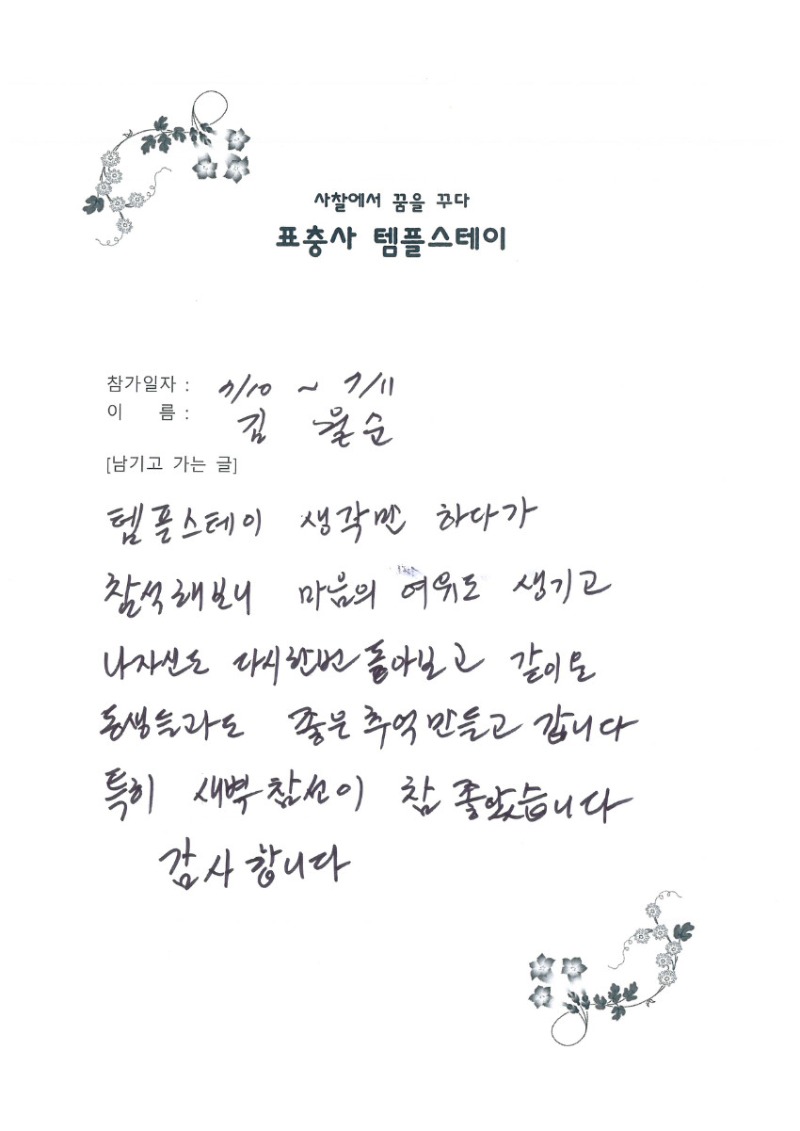 사찰에서 꿈을 꾸다
표충사 템플스테이
참가일자 : 7/10 ~ 7/11
이 름 : 김 월순
[남기고 가는 글]
템플스테이 생각만 하다가
참석해보니 마음의 여유도 생기고
나자신도 다시한번 돌아보고 같이온
동생들과도 좋은 추억 만들고 갑니다
특히 새벽 참선이 참 좋았습니다
감사 합니다